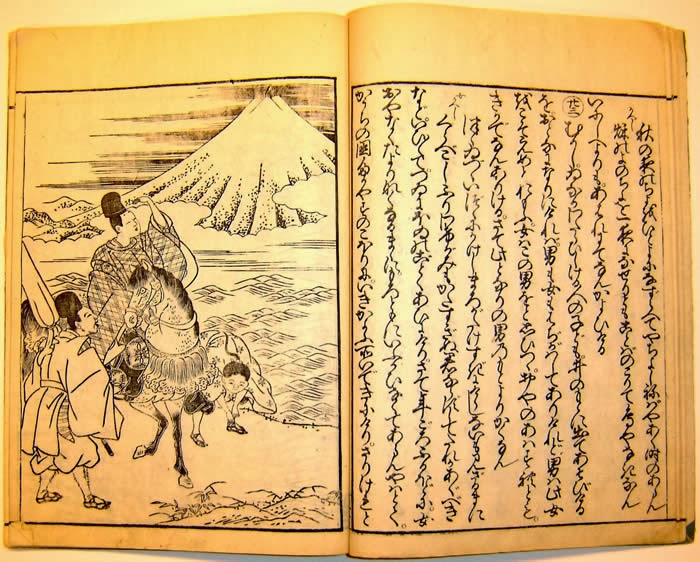 秋の夜の千夜を一夜になずらへてやちよしねばやあく時のあらん
かへし
秋のよのちよを一夜になせりともことばのこりて鳥やなきなん
いにしへよりもあはれにてなんかよひける
廿三 むかしゐなかわたらひしける人の子ども井のもとに出てあそびける
をおとなになりにければ男も女もはぢかはしてありけれど男は此女
をこそえめとおもふ女はこの男をとおもひつゝおやのあはすれども。
きかでなんありけるさて此となりの男のもとよりかくなん
つゝゐつのゐづゝにかけしまろがたけすぎにけらしないも見ざるまに
女かへし
くらべこしふりわけがみもかたすぎぬ君ならずしてたれかあぐべき
などいひ〳〵てつゐにほいのごとくあひにけりさて年ごろふるほどに女
おやなくたよりなくなるまゝにもろともにいふかひなくてあらんやはとて。
かうちの国たかやすのこほりにいきかよふ所いできにけりさりけれど